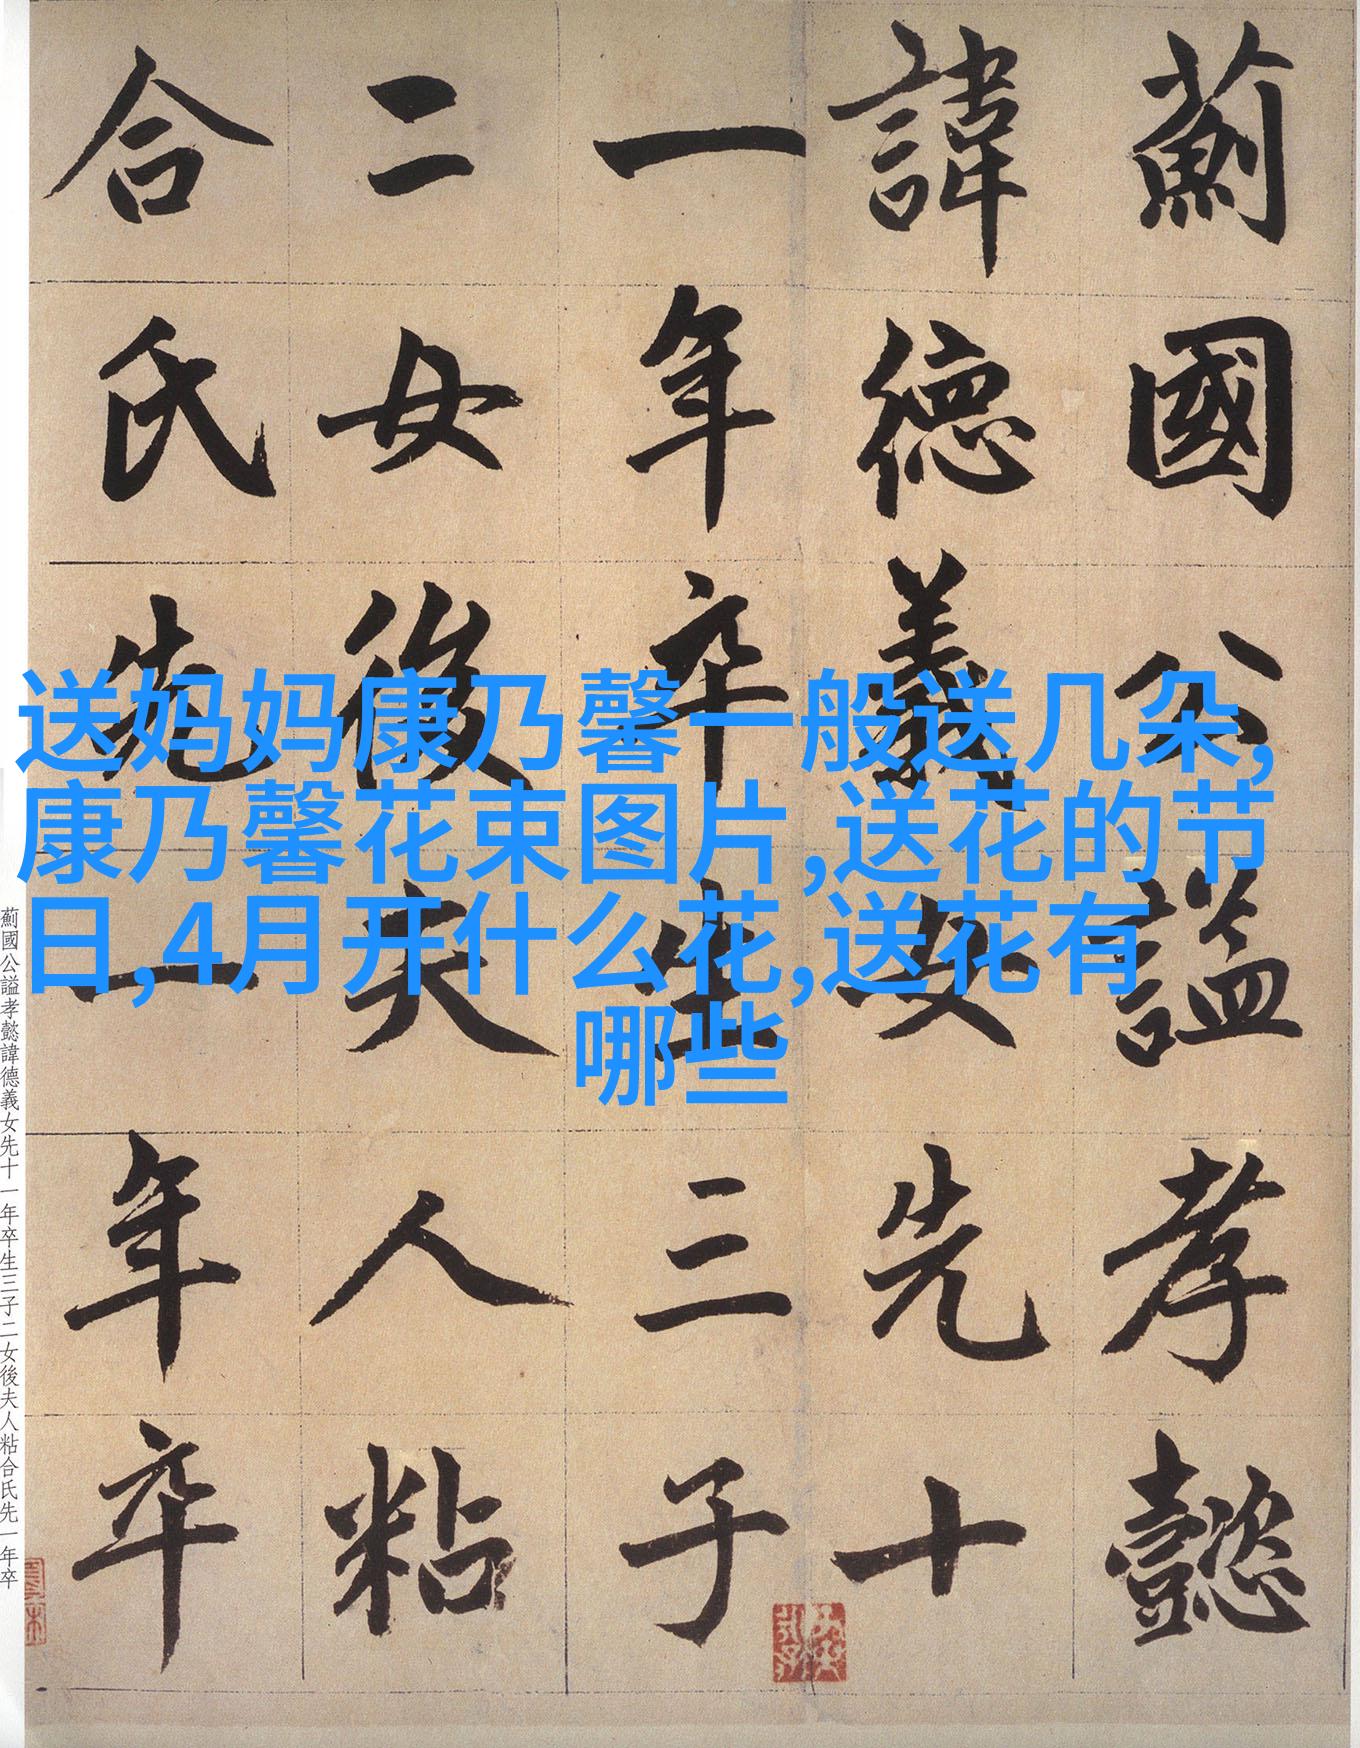 薊國公謚孝懿
諱德義女先十
一年卒生三子
二女後夫人粘
合氏先一年卒
送妈妈康乃馨一般送几朵,
康乃馨花束图片,送花的节
日,4月开什么花,送花有
哪些
薊國公謚孝懿諱德義女先十一年卒生三子二女後夫人粘合氏先一年卒